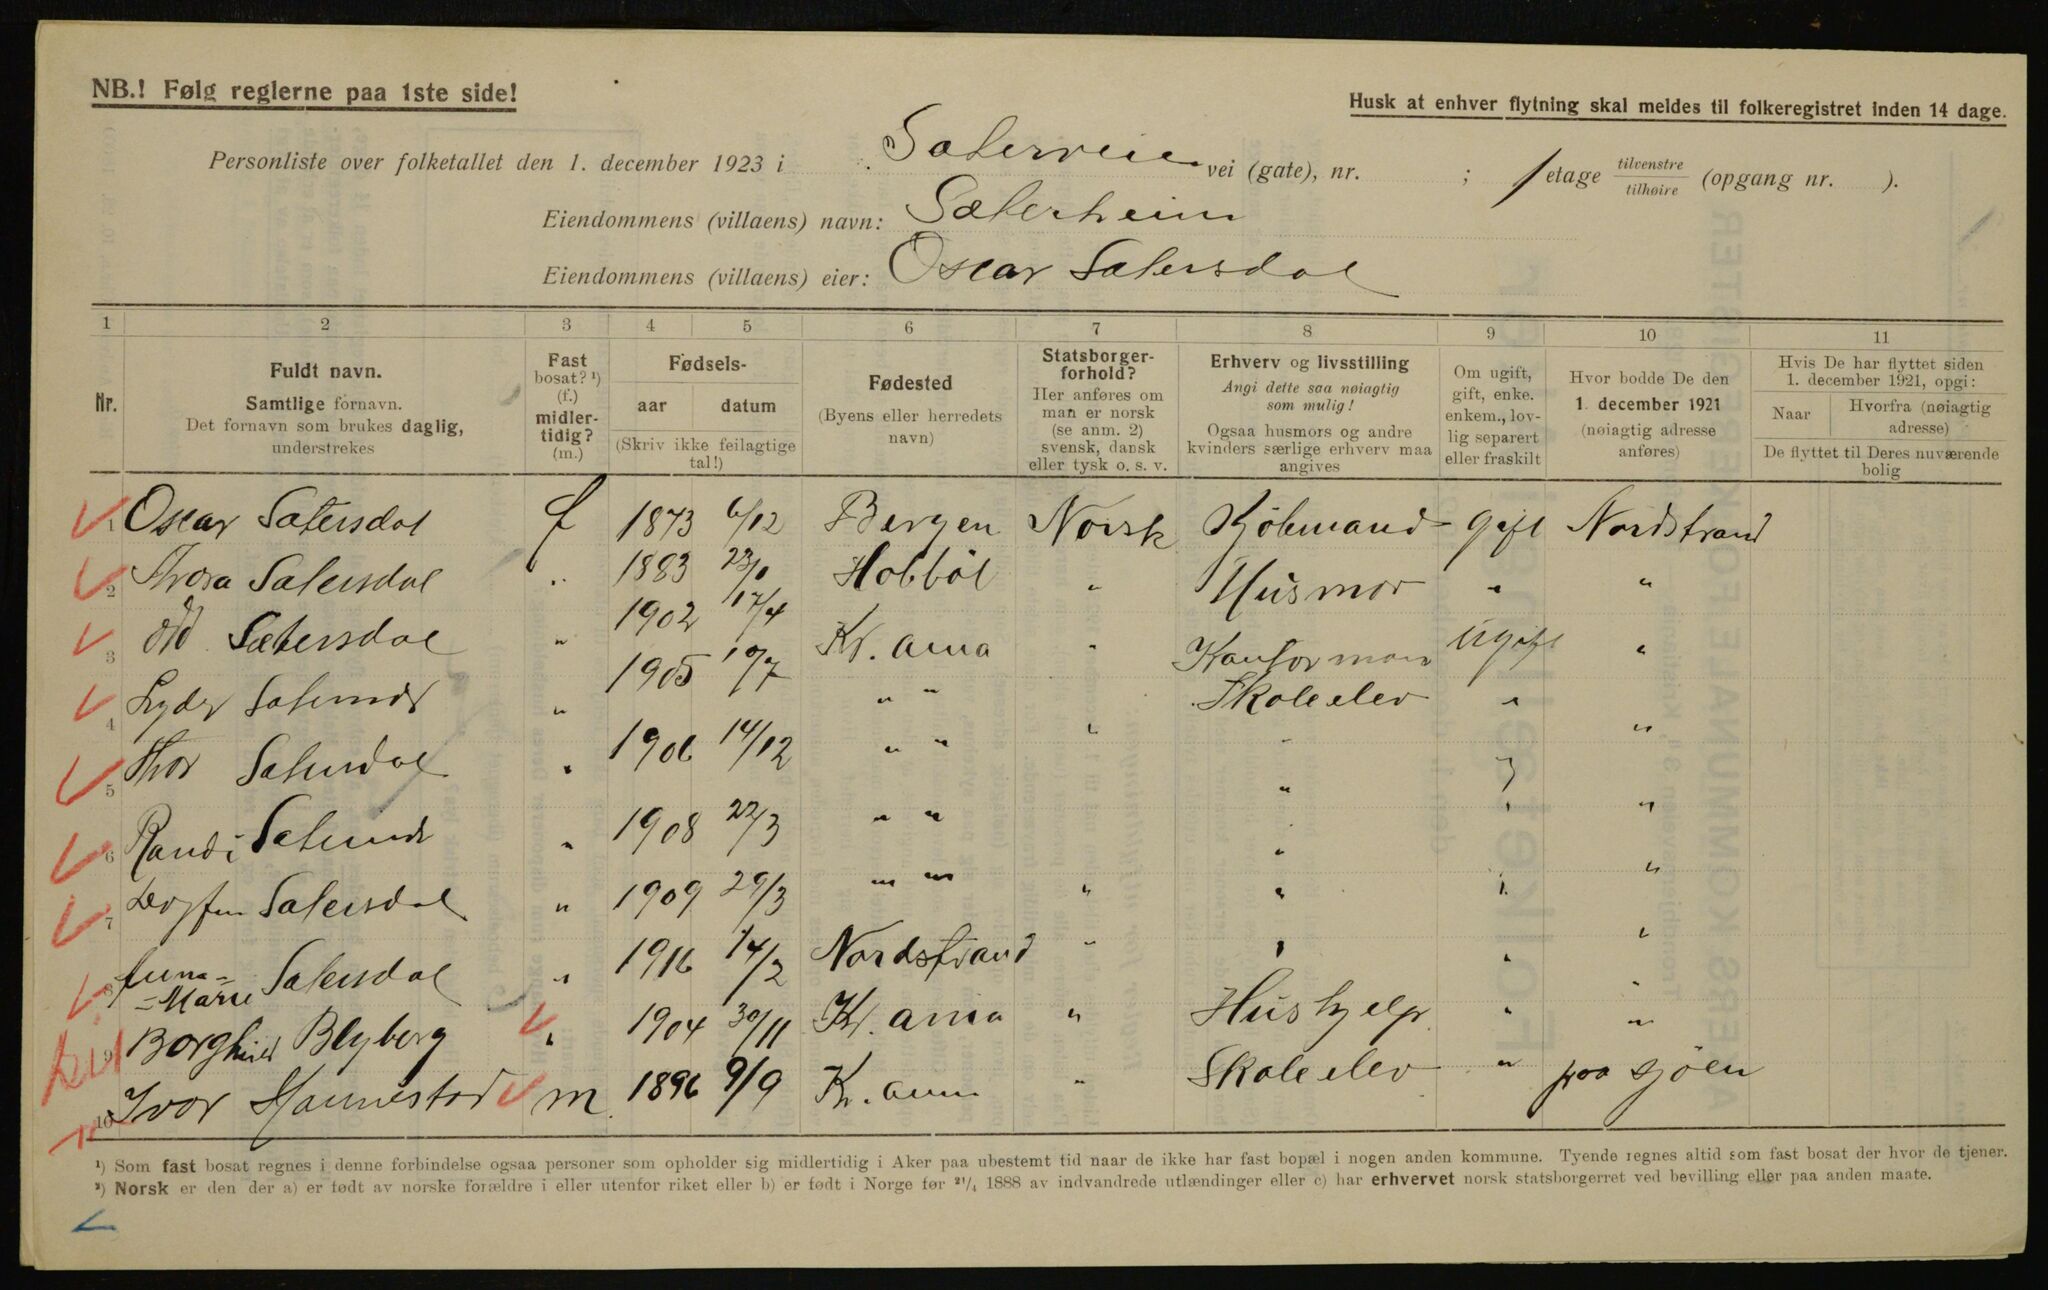 NB.! Følg reglerne paa 1ste side!
Husk at enhver flytning skal meldes til folkeregistret inden 14 dage.
Personliste over folketallet den 1. december 1923 i Sæterveien vei (gate), nr. ; 1 etage tilvenstre / tilhøire (opgang nr. ).
Eiendommens (villaens) navn: Sæterheim
Eiendommens (villaens) eier: Oscar Sætersdal
1 2 3 4 5 6 7 8 9 10 11
Nr.
Fuldt navn. Samtlige fornavn. Det fornavn som brukes daglig, understrekes
Fast bosat? ¹) (f.) midler-tidig? (m.)
Fødsels- aar datum (Skriv ikke feilagtige tal!)
Fødested (Byens eller herredets navn)
Statsborger-forhold? Her anføres om man er norsk (se anm. 2) svensk, dansk eller tysk o. s. v.
Erhverv og livsstilling Angi dette saa nøiagtig som mulig! Ogsaa husmors og andre kvinders særlige erhverv maa angives
Om ugift, gift, enke. enkem., lov-lig separert eller fraskilt
Hvor bodde De den 1. december 1921 (nøiagtig adresse anføres)
Hvis De har flyttet siden 1. december 1921, opgi: Naar Hvorfra (nøiagtig adresse) De flyttet til Deres nuværende bolig
1 Oscar Sætersdal f 1873 6/12 Bergen Norsk Kjöbmand gift Nordstrand
2 Thora Sætersdal " 1883 Hobböl " Husmor " "
3 Odd Sætersdal " 1902 17/4 Kr. ania " Kontorman Ugift "
4 Lyder Sætersdal " 1905 10/7 " " Skoleelev " "
5 Thor Sætersdal " 1906 14/12 " " " "
6 Randi Sætersdal " 1908 22/3 " " " "
7 Dagfin Sætersdal " 1909 29/3 " " " " " "
8 Anna-Marie Sætersdal " 1916 14/2 Nordstrand " " " "
9 Borghild Blyberg " 1904 30/11 Kr. ania " Hushjelp " "
10 Ivar Hannestad m 1896 9/9 Kr. ania " Skoleelev " paa sjöen
¹) Som fast bosat regnes i denne forbindelse ogsaa personer som opholder sig midlertidig i Aker paa ubestemt tid naar de ikke har fast bopæl i nogen anden kommune. Tyende regnes altid som fast bosat der hvor de tjener.
²) Norsk er den der a) er født av norske forældre i eller utenfor riket eller b) er født i Norge før 21/4 1888 av indvandrede utlændinger eller c) har erhvervet norsk statsborgerret ved bevilling eller paa anden maate.